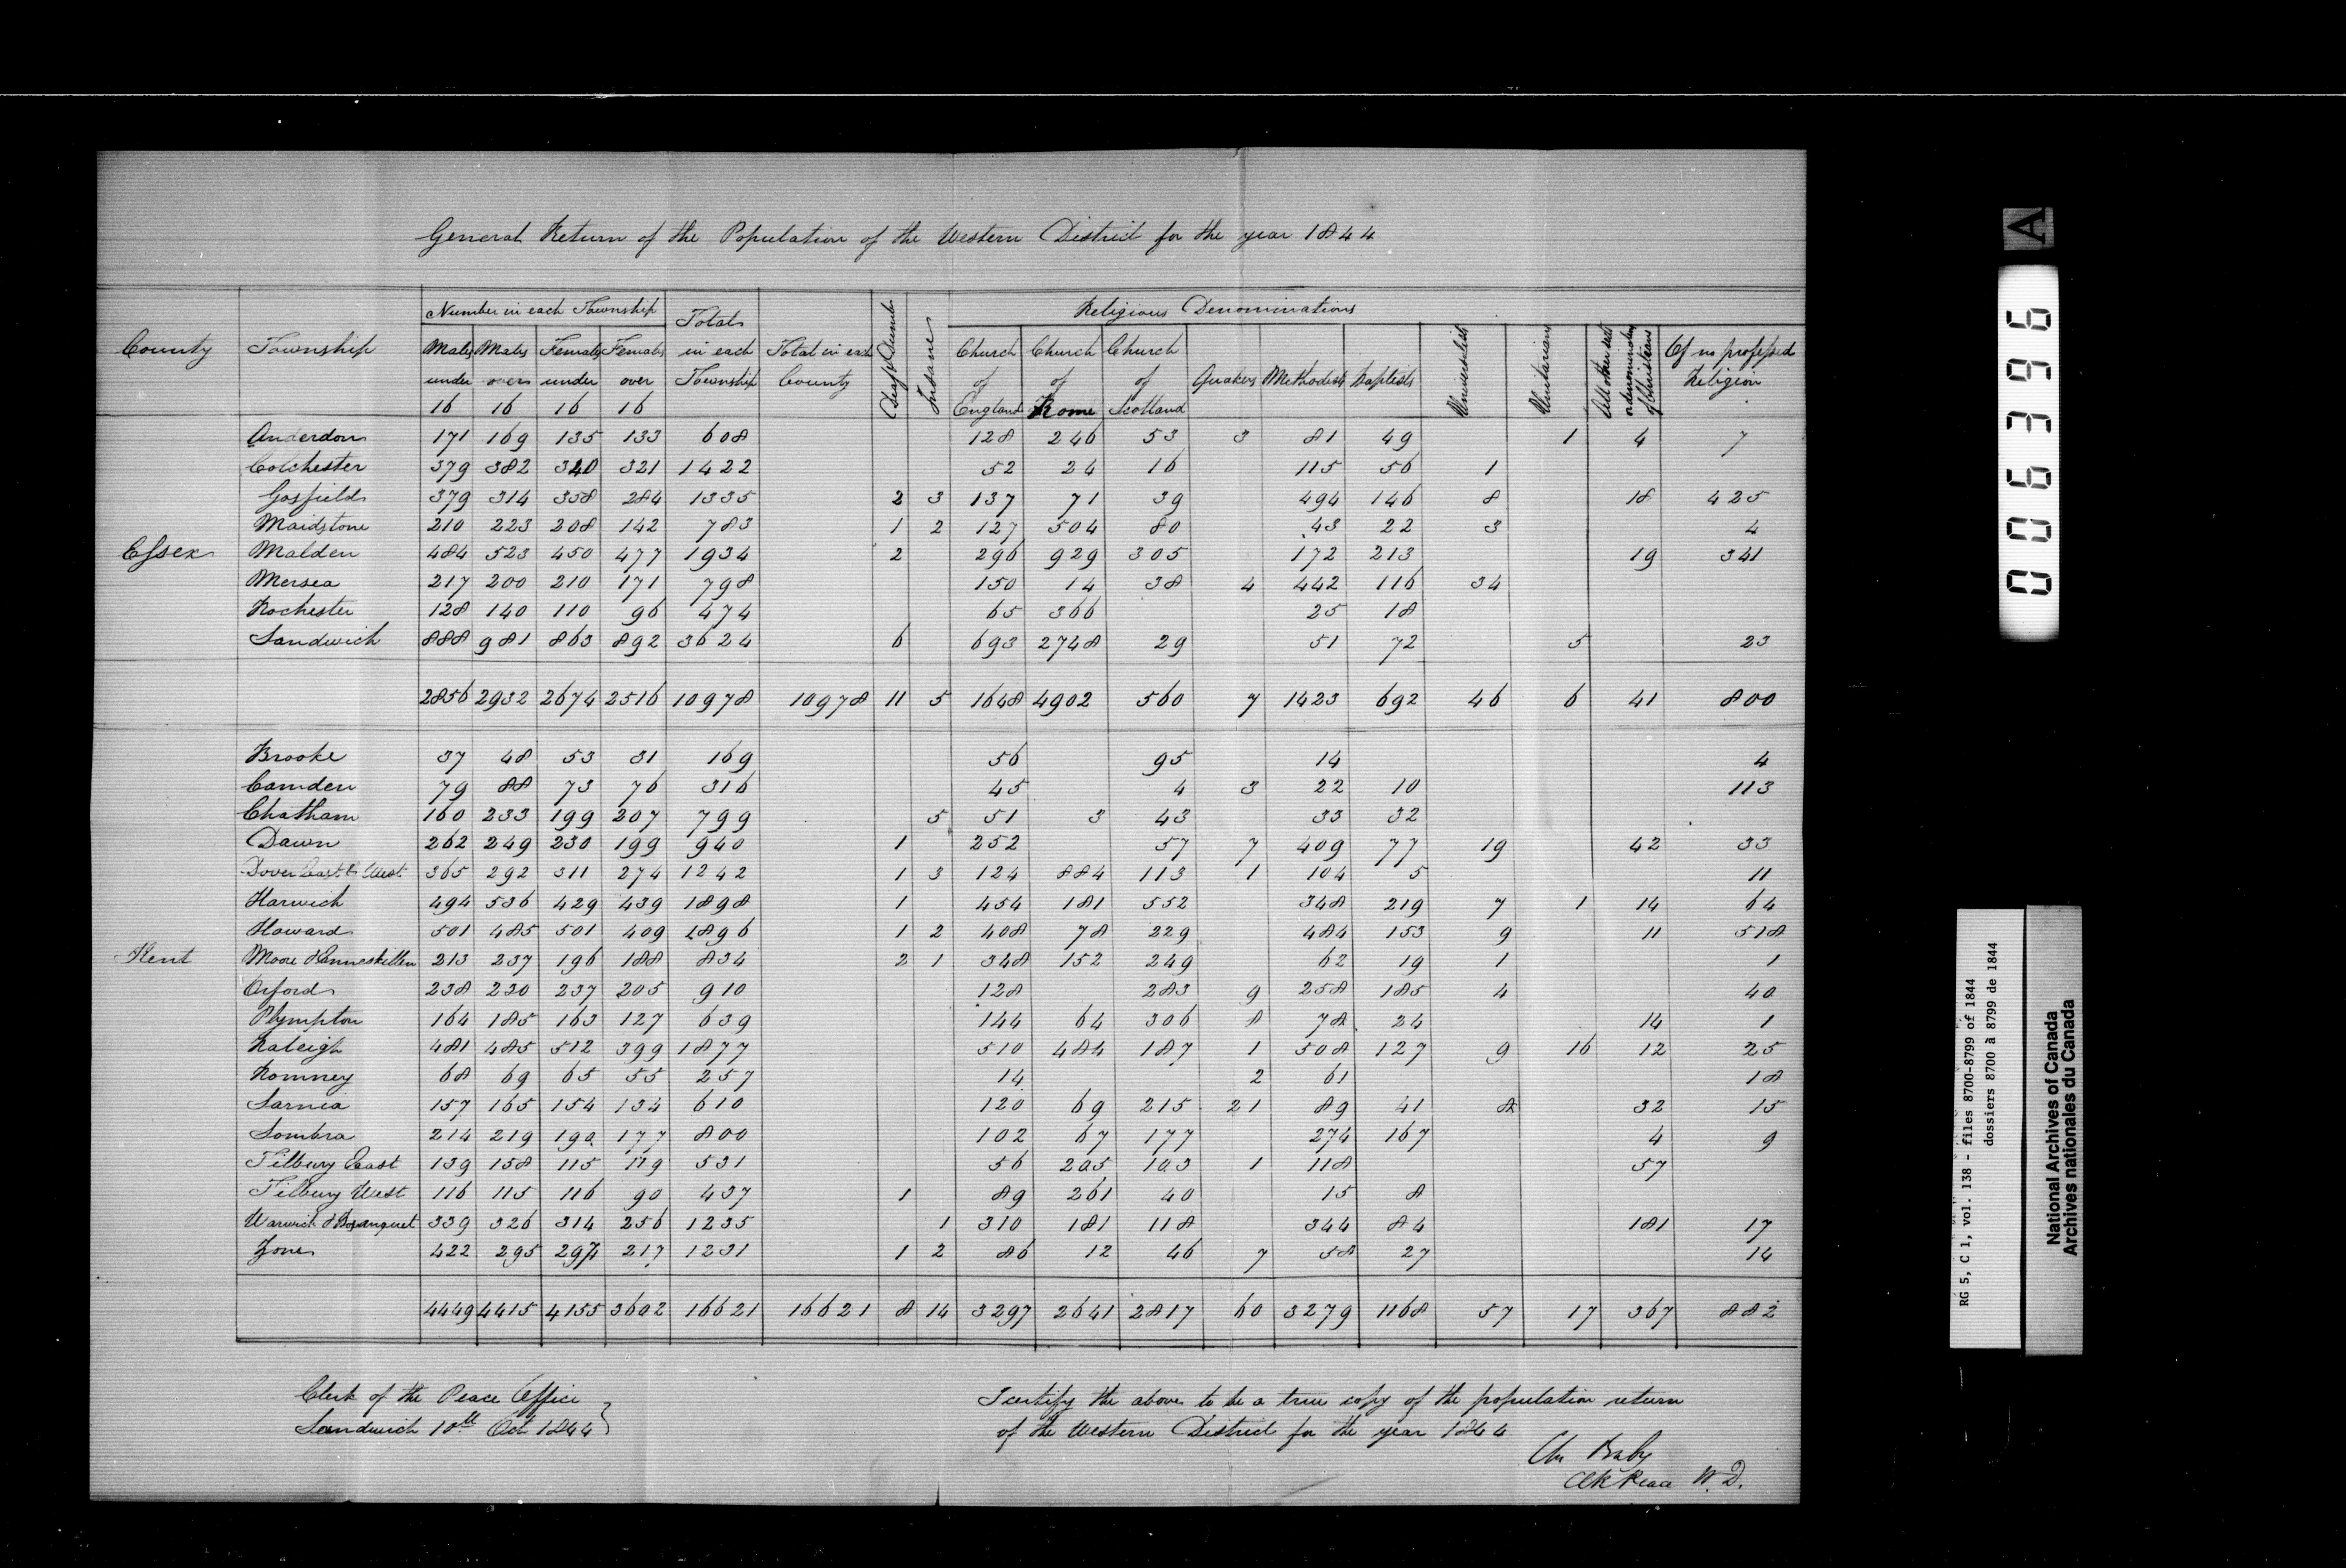 General Return of the Population of the Western District for the year 1844
County Township Number in each Township Total in each Township Total in each County Deaf & Dumb Insane Religious Denominations
Males under 16 Males over 16 Females under 16 Females over 16 Church of England Church of Rome Church of Scotland Quakers Methodists Baptists Universalists Unitarians All other sects or denominations of Christians Of no professed Religion
Anderdon 171 169 135 133 608 128 246 53 3 81 49 1 4 7
Colchester 379 382 340 321 1422 52 24 16 115 56 1
Gosfield 379 314 358 284 1335 2 3 137 71 39 494 146 8 18 425
Maidstone 210 223 208 142 783 1 2 127 504 80 43 22 3 4
Essex Malden 484 523 450 477 1934 2 296 929 305 172 213 19 341
Mersea 217 200 210 171 798 150 14 38 4 442 116 34
Rochester 128 140 110 96 474 65 366 25 18
Sandwich 888 981 863 892 3624 6 693 2748 29 51 72 5 23
2856 2932 2674 2516 10978 10978 11 5 1648 4902 560 7 1423 692 46 6 41 800
Brooke 37 48 53 31 169 56 95 14 4
Camden 79 88 73 76 316 45 4 3 22 10 113
Chatham 160 233 199 207 799 5 51 3 43 33 32
Dawn 262 249 230 199 940 1 252 57 7 409 77 19 42 33
Dover East & West 365 292 311 274 1242 1 3 124 884 113 1 104 5 11
Harwich 494 536 429 439 1898 1 454 181 552 348 219 7 1 14 64
Howard 501 485 501 409 1896 1 2 408 78 229 484 153 9 11 518
Kent Moore & Enniskillen 213 237 196 188 834 2 1 348 152 249 62 19 1 1
Orford 238 230 237 205 910 128 283 9 258 185 4 40
Plympton 164 185 163 127 639 144 64 306 8 78 24 14 1
Raleigh 481 485 512 399 1877 510 484 187 1 508 127 9 16 12 25
Romney 68 69 65 55 257 14 2 61 18
Sarnia 157 165 154 134 610 120 69 215 21 89 41 8 32 15
Sombra 214 219 190 177 800 102 67 177 274 167 4 9
Tilbury East 139 158 115 119 531 56 205 103 1 118 57
Tilbury West 116 115 116 90 437 1 89 261 40 15 8
Warwick & Bosanquet 339 326 314 256 1235 1 310 181 118 344 84 181 17
Zone 422 295 297 217 1231 1 2 86 12 46 7 58 27 14
4449 4415 4155 3602 16621 16621 8 14 3297 2641 2817 60 3279 1168 57 17 367 882
Clerk of the Peace Office
Sandwich 18th Oct 1844
I certify the above to be a true copy of the population return
of the Western District for the year 1844
Ch Baby
Clk Peace W. D.
A
006396
RG 5, C 1, vol. 138 - files 8700-8799 of 1844
dossiers 8700 à 8799 de 1844
National Archives of Canada
Archives nationales du Canada